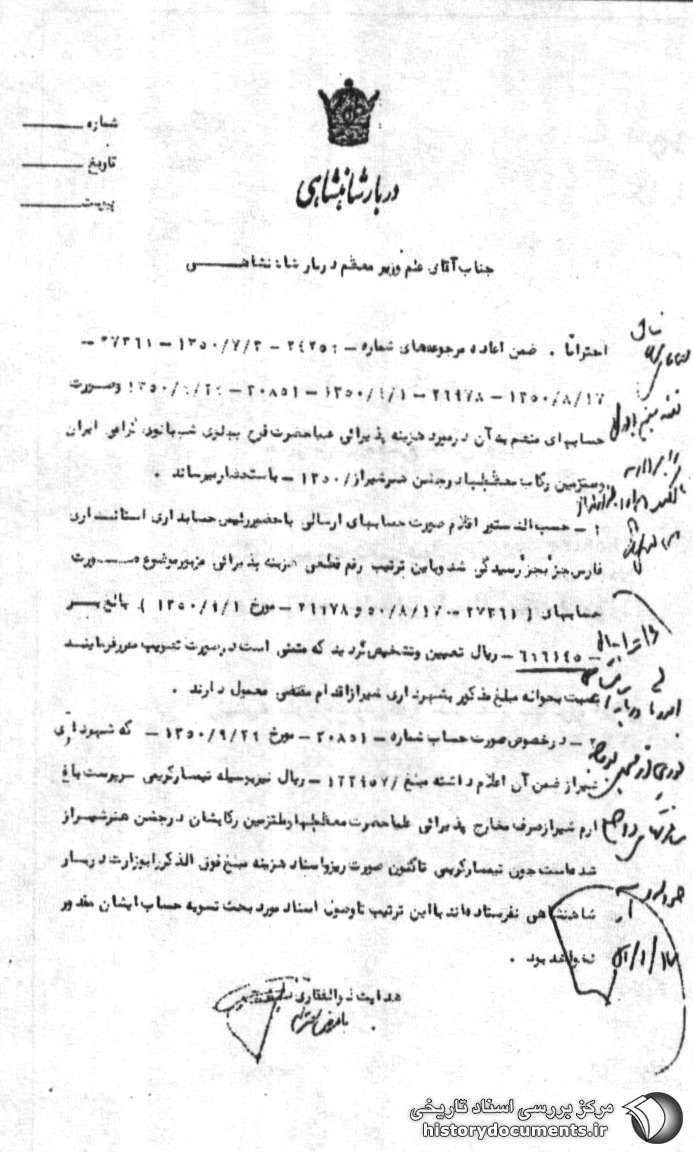 شماره
تاریخ
پیوست
دربار شاهنشاهی
جناب آقای علم وزیر معظم دربار شاهنشاهی
احتراماً . ضمن اعاده مرجوعه‌های شماره – ۲٤۲۵۹ – ۱۳۵۰/۷/۳ – ۲۷۳٦۱ –
۱۳۵۰/۸/۱۷ – ۲٦۹۷۸ – ۱۳۵۰/۹/۱ – ۳۰۸۵۱ – ۱۳۵۰/۹/۲۹ وصورت
حسابهای منضم به آن در مورد هزینه پذیرائی علیاحضرت فرح پهلوی شهبانوی گرامی ایران
وملتزمین رکاب معظم‌لها در جشن هنر شیراز/ ۱۳۵۰ – باستحضار میرساند .
۱ – حسب الدستور اقلام صورت حسابهای ارسالی با حضور رئیس حسابداری استانداری
فارس جز بجز رسیدگی شد وباین ترتیب رقم قطعی هزینه پذیرائی مزبور موضوع صورت
حسابهای ( ۲۷۳٦۱ – ۵۰/۸/۱۷ و ۲٦۹۷۸ – مورخ ۱۳۵۰/۹/۱ ) بالغ بر
– ٦۱٦۱٤۵ – ریال تعیین وتشخیص گردید که متمنی است در صورت تصویب مقرر فرمایند
نسبت بحواله مبلغ مذکور بشهرداری شیراز اقدام مقتضی معمول دارند .
۲ – در خصوص صورت حساب شماره – ۳۰۸۵۱ – مورخ ۱۳۵۰/۹/۲۹ – که شهرداری
شیراز ضمن آن اعلام داشته مبلغ /۱۲۲۹۵۷ – ریال نیز بوسیله تیمسار کریمی سرپرست باغ
ارم شیراز صرف مخارج پذیرائی علیاحضرت معظم‌لها وملتزمین رکابشان در جشن هنر شیراز
شده‌است چون تیمسار کریمی تاکنون صورت ریز واسناد هزینه مبلغ فوق الذکر را بوزارت دربار
شاهنشاهی نفرستاده‌اند با این ترتیب تا وصول اسناد مورد بحث تسویه حساب ایشان مقدور
نخواهد بود .
هدایت ذوالفقاری
مرکز بررسی اسناد تاریخی
historydocuments.ir